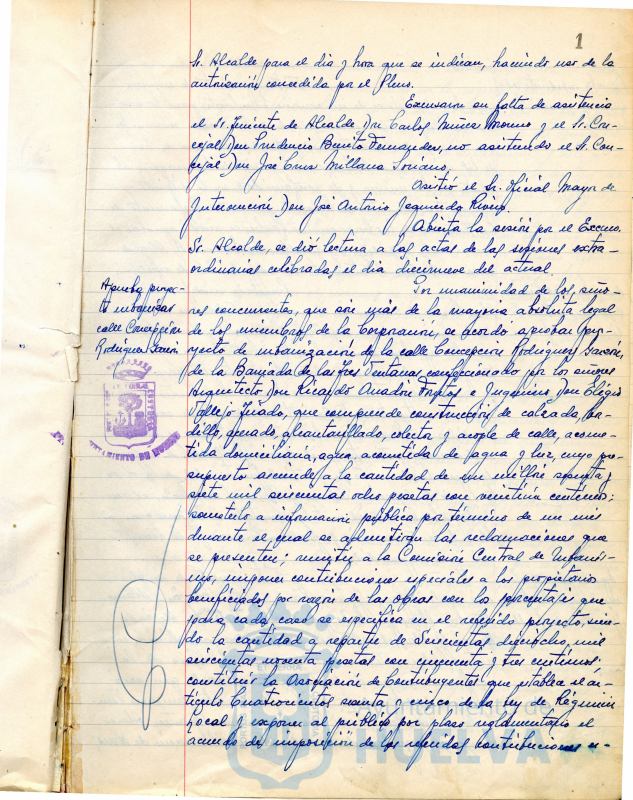 1
Sr. Alcalde para el dia y hora que se indican, haciendo uso de la
autorización concedida por el Pleno.
Excusaron su falta de asistencia
el Sr. Teniente de Alcalde Don Carlos Núñez Moreno y el Sr. Con-
cejal Don Prudencio Benito Fernandez, no asistiendo el Sr. Con-
cejal Don José Cruz Millana Soriano.
Asistió el Sr. Oficial Mayor de
Intervención Don José Antonio Izquierdo Rivero.
Abierta la sesión por el Excmo.
Sr. Alcalde, se dió lectura a las actas de las sesiones extra-
ordinarias celebradas el dia diecinueve del actual.
Aprueba proyec-
to urbanizar
calle Concepción
Rodríguez Garzón
Por unanimidad de los seño-
res concurrentes, que son más de la mayoria absoluta legal
de los miembros de la Corporación, se acordó aprobar pro-
yecto de urbanización de la calle Concepción Rodriguez Garzón,
de la Barriada de las Tres Ventanas, confeccionado por los señores
Arquitecto Don Ricardo Anadón e Ingeniero Don Eligio
Vallejo, que comprende construcción de calzada, bor-
dillo, acerado, alcantarillado, colector y acople de calle, acome-
tida domiciliaria, agua, acometida de agua y luz, cuyo pre-
supuesto asciende a la cantidad de un millón sesenta y
siete mil seiscientas ocho pesetas con centimos;
someterlo a información pública por término de un mes
durante el cual se admitiran las reclamaciones que
se presenten; remitir a la Comisión Central de Urbanis-
mo, imponer contribuciones especiales a los propietarios
beneficiados por razón de las obras con los porcentajes que
para cada caso se especifica en el referido proyecto, sien-
do la cantidad a repartir de Seiscientas dieciocho mil
seiscientas noventa pesetas con cincuenta y tres centimos:
constituir la Asociación de Contribuyentes que establece el ar-
tículo Cuatrocientos sesenta y cinco de la Ley de Régimen
Local y exponer al público por plazo reglamentario el
acuerdo de imposición de las referidas contribuciones e-
AYUNTAMIENTO DE HUELVA
Ayuntamiento de
HUELVA